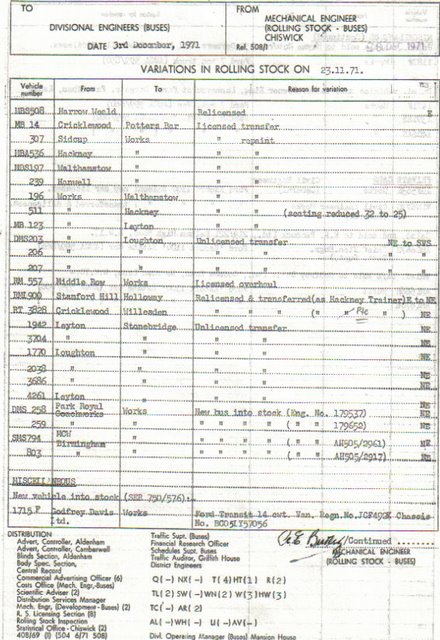 TO
FROM
DIVISIONAL ENGINEERS (BUSES)
MECHANICAL ENGINEER
(ROLLING STOCK - BUSES)
CHISWICK
DATE 3rd December, 1971
Ref. 508/1
VARIATIONS IN ROLLING STOCK ON 23.11.71.
Vehicle number From To Reason for variation
MBS508 Harrow Weald Relicensed
MB 14 Cricklewood Potters Bar Licensed transfer
307 Sidcup Works " repaint
MBA536 Hackney " " "
MDS197 Walthamstow " " "
239 Hanwell " " "
196 Works Walthamstow " "
511 " Hackney " " (seating reduced 32 to 25)
MB 123 " Leyton " "
DMS203 " Loughton Unlicensed transfer NE to SVS
206 " " " " " "
207 " " " " " "
RM 557 Middle Row Works Licensed overhaul
RML900 Stamford Hill Holloway Relicensed & transferred(as Hackney Trainer)E to NE
RT 3828 Cricklewood Willesden " " ( " " ) NE
1942 Leyton Stonebridge Unlicensed transfer NE
3704 " " " " NE
1770 Loughton " " " NE
2038 " " " " NE
3686 " " " " NE
4261 Leyton " " " NE
DMS 258 Park Royal Coachworks Works New bus into stock (Eng. No. 179537) NE
259 " " " " " " ( " " 179652) NE
SMS794 MCW Birmingham " " " " " ( " " AH505/2961) NE
803 " " " " " " ( " " AH505/2917) NE
MISCELLANEOUS
New vehicle into stock (SER 750/576):
1715 F Godfrey Davis Ltd. Works Ford Transit 14 cwt. Van. Regn.No.JGF492K Chassis
No. BC05LY57056
/Continued
MECHANICAL ENGINEER
(ROLLING STOCK - BUSES)
DISTRIBUTION
Advert, Controller, Aldenham
Advert, Controller, Camberwell
Blinds Section, Aldenham
Body Spec. Section,
Central Record
Commercial Advertising Officer (6)
Costs Office (Mech. Engr.-Buses)
Scientific Adviser (2)
Distribution Services Manager
Mech. Engr, (Development - Buses) (2)
R. S. Licensing Section (8)
Rolling Stock Inspection
Statistical Office - Chiswick (2)
408/69 (I) (504 6/71 508)
Traffic Supt. (Buses)
Financial Research Officer
Schedules Supt. Buses
Traffic Auditor, Griffith House
District Engineers
Q(-) NX(-) T(4)HT(1) R(2)
TL(2) SW(-)WN(2) W(3)HW(3)
TC(-) AR(2)
AL(-)WH(-) U(-)AV(-)
Divl. Operating Manager (Buses) Mansion House